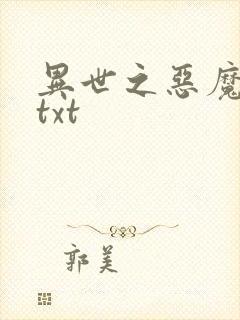 異世之惡魔
txt
郭美